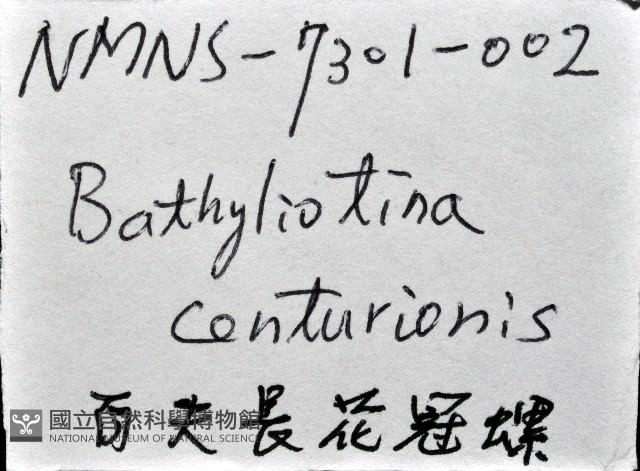 NMNS-7301-002
Bathyliotina
centurionis
百夫長花冠螺
國立自然科學博物館
NATIONAL MUSEUM OF NATURAL SCIENCE